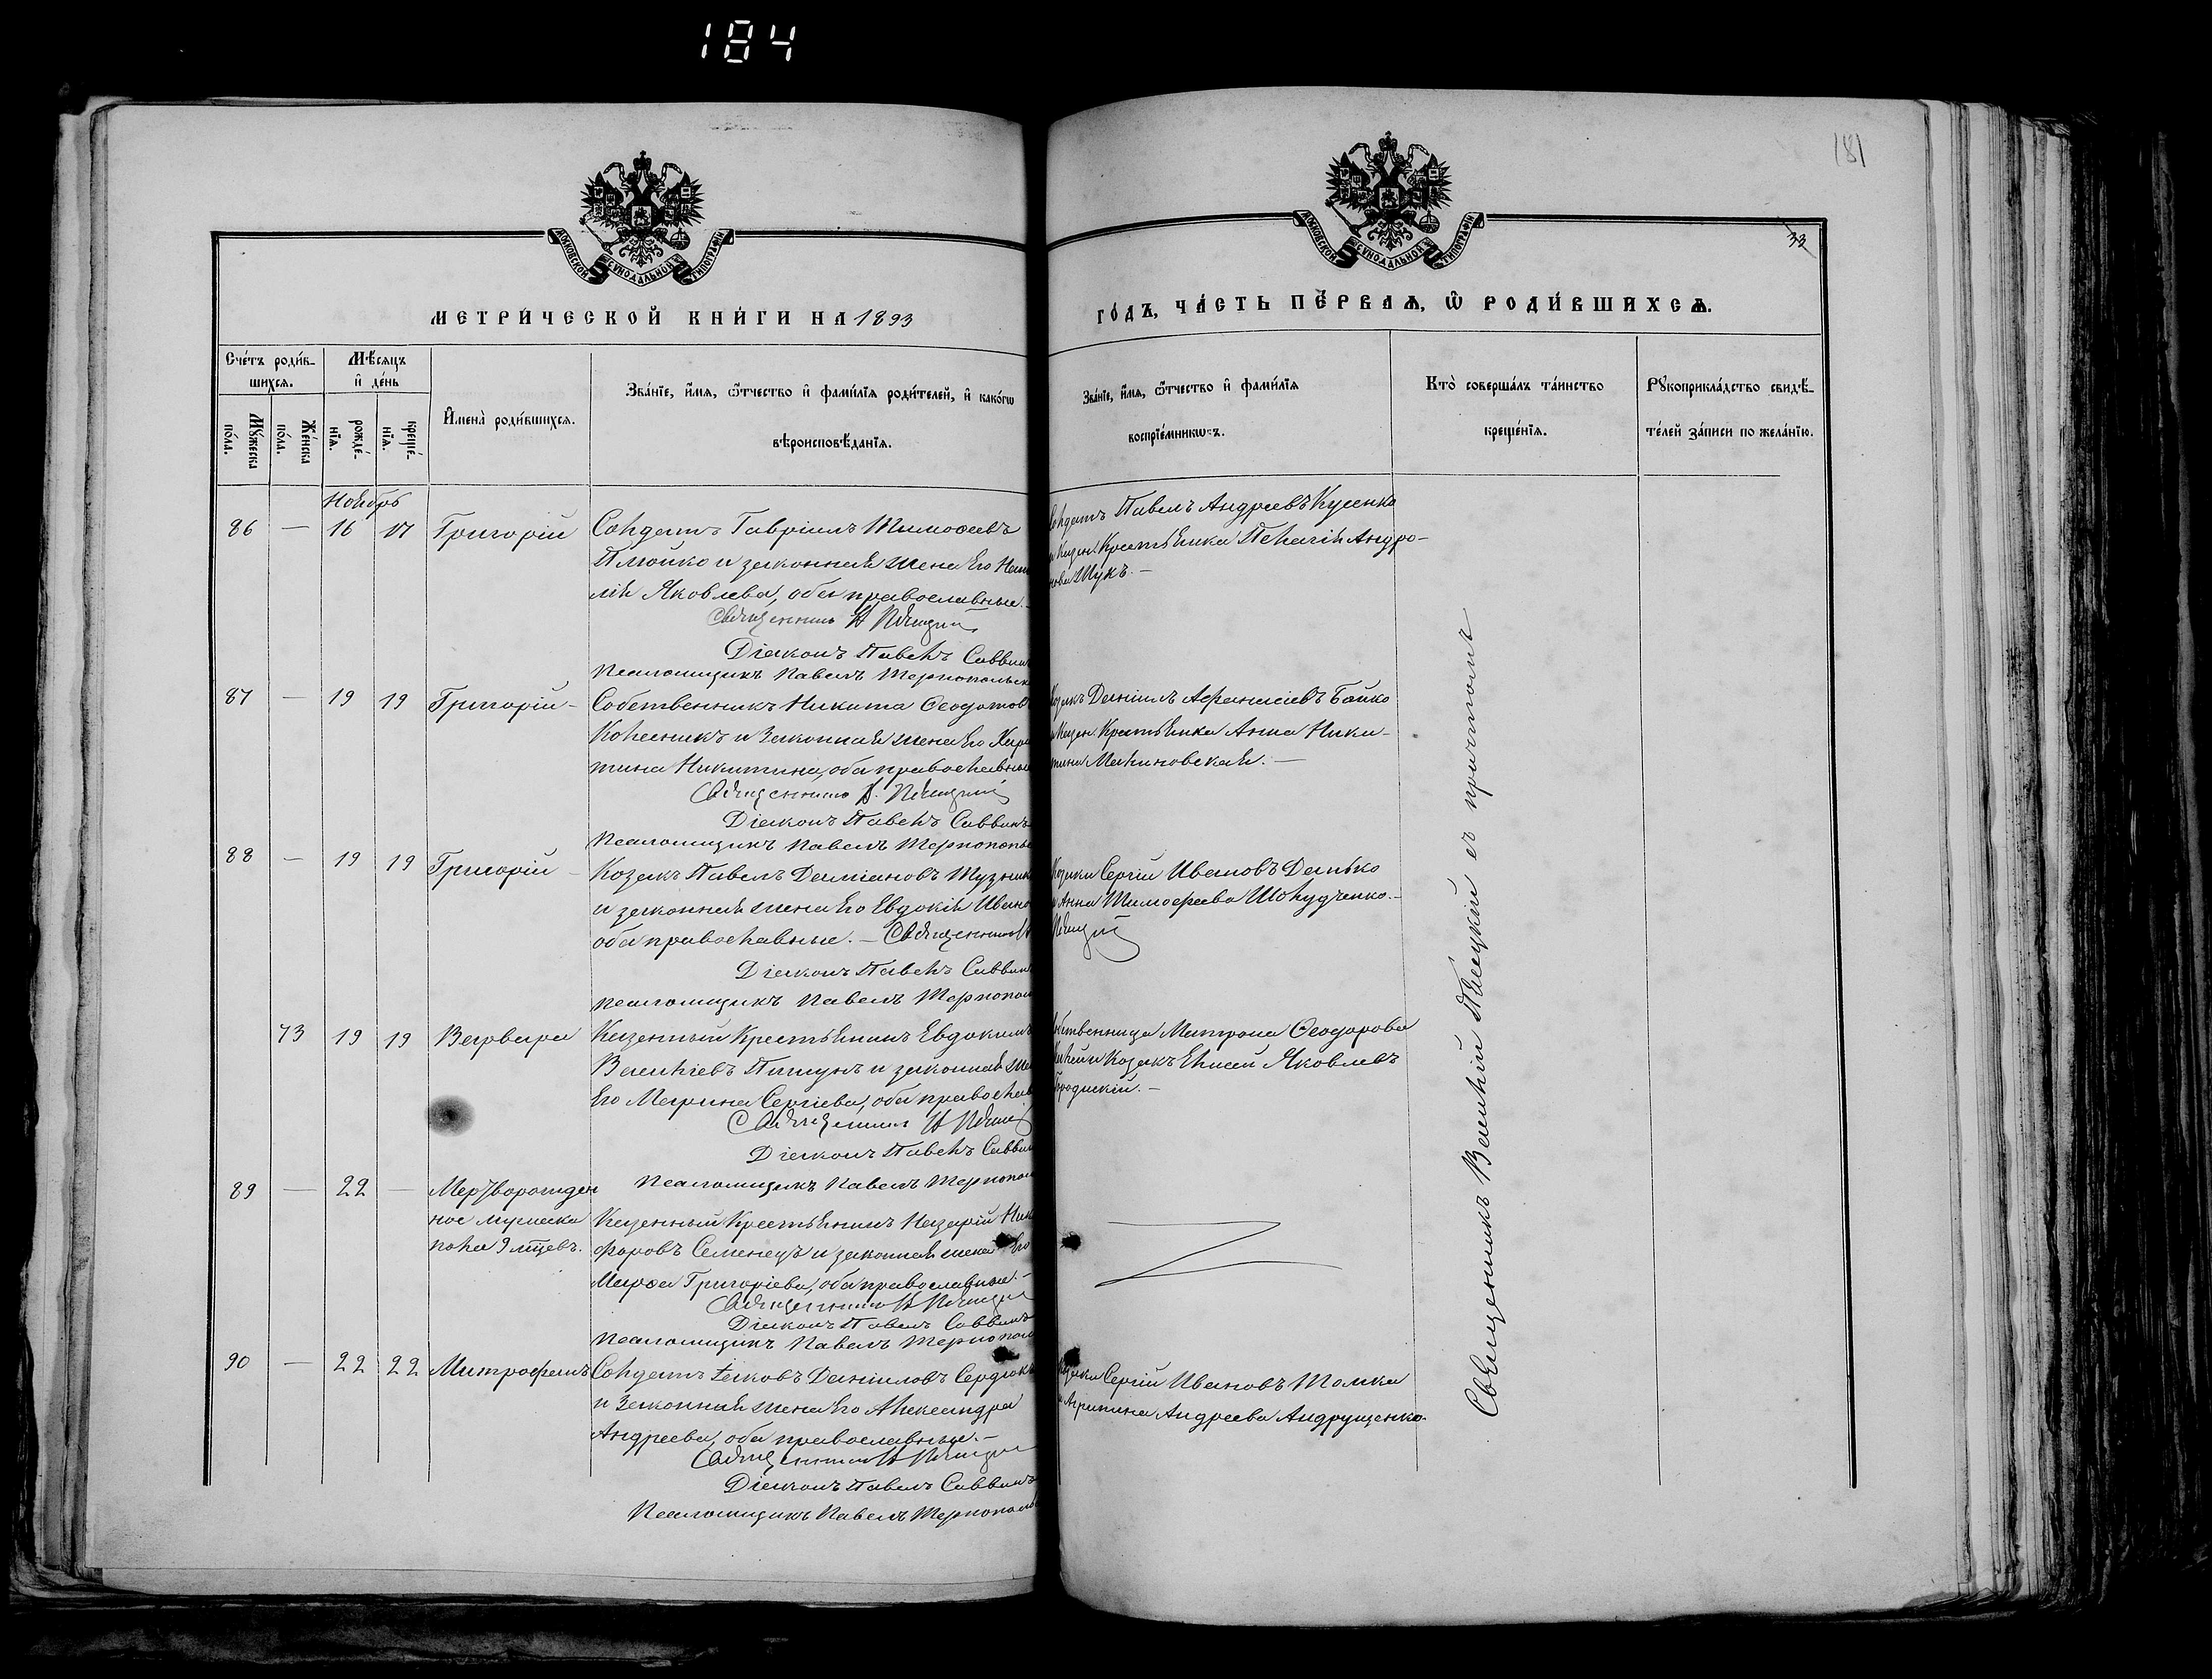 184
181
33
МОСКОВСКОЙ СѴНОДАЛЬНОЙ ТИПОГРАФІИ
МОСКОВСКОЙ СѴНОДАЛЬНОЙ ТИПОГРАФІИ
МЕТРИ́ЧЕСКОЙ КНИ́ГИ НА 1893
ГО́ДЪ, ЧА́СТЬ ПЕ́РВАѦ, Ѡ РОДИ́ВШИХСѦ.
Сче́тъ роди́в-
шихсѧ.
Мѣ́сѧцъ
и҆ де́нь
Мꙋ́жеска
по́ла.
Же́нска
по́ла.
рожде́-
нїѧ.
креще́-
нїѧ.
И҆мена̀ роди́вшихсѧ.
Зва́нїе, и҆́мѧ, ѻ҆́тчество и҆ фами́лїѧ роди́телей, и҆ како́гѡ
вѣроисповѣ́данїѧ.
Зва́нїе, и҆́мѧ, ѻ҆́тчество и҆ фами́лїѧ
воспрїе́мникѡвъ.
Кто̀ соверша́лъ та́инство
креще́нїѧ.
Рꙋкоприкла́дство свидѣ́-
телей за́писи по жела́нїю.
Ноябрь
86 — 16 17 Григорій
Солдатъ Гавріилъ Тимоѳеевъ
Плюйко и законная жена его Ната
лія Яковлева, оба православные.
Священникъ В Пясецкій
Діаконъ Павелъ Саввин
Псаломщикъ Павелъ Тернопольск
Солдатъ Павелъ Андреевъ Кусенко
и Казен. Крестьянка Пелагія Андро-
нова Щукъ. —
87 — 19 19 Григорій —
Собственникъ Никита Ѳеодотов
Колесникъ и Законная жена его Хари
тина Никитина, оба православные
Священникъ В. Пясецкій
Діаконъ Павелъ Саввинъ
Псаломщикъ Павелъ Тернополь
Козакъ Даніилъ Аѳанасіевъ Бойко
и Казен. Крестьянка Анна Ники-
тина Малиновская. —
88 — 19 19 Григорій —
Козакъ Павелъ Даміановъ Тузник
и законная жена его Евдокія Ивано
оба православные. — Священникъ В
Пясецкій
Діаконъ Павелъ Саввин
Псаломщикъ Павелъ Тернопол
Козаки Сергій Ивановъ Данько
и Анна Тимофеева Шолудченко. —
73 19 19 Варвара
Казенный Крестьянинъ Евдокимъ
Василіевъ Пищунъ и законная же
его Марина Сергіева, оба православ
Священникъ В Пясец
Діаконъ Павелъ Саввин
Псаломщикъ Павелъ Тернопол
Собственница Матрона Ѳеодорова
и Козакъ Елисей Яковлевъ
Городискій. —
89 — 22 — Мертворожден
ное мужеска
пола 9 мѣцевъ.
Казенный Крестьянинъ Назарій Ник
форовъ Семенецъ и законная жена его
Марѳа Григоріева, оба православные. —
Священникъ В Пясецкі
Діаконъ Павелъ Саввинъ
Псаломщикъ Павелъ Тернопол
90 — 22 22 Митрофанъ
Солдатъ Іаковъ Даніиловъ Сердюкъ
и Законная жена его Александра
Андреева, оба православные. —
Священникъ В Пясецкі
Діаконъ Павелъ Саввинъ
Псаломщикъ Павелъ Тернопол
Козаки Сергій Ивановъ Томка
и Агрипина Андреева Андрущенко.
Священникъ Василій Пясецкій съ причтомъ